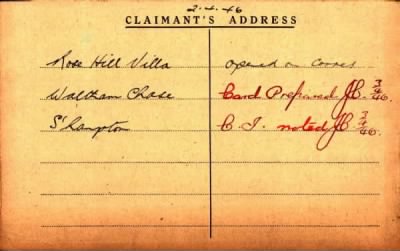 2-4-46
CLAIMANT'S ADDRESS
Rose Hill Villa
Waltham Chase
S'hampton
Opened on Corres
Card Prepared JC. 3/4/46.
C. I. noted JC 3/4/46.